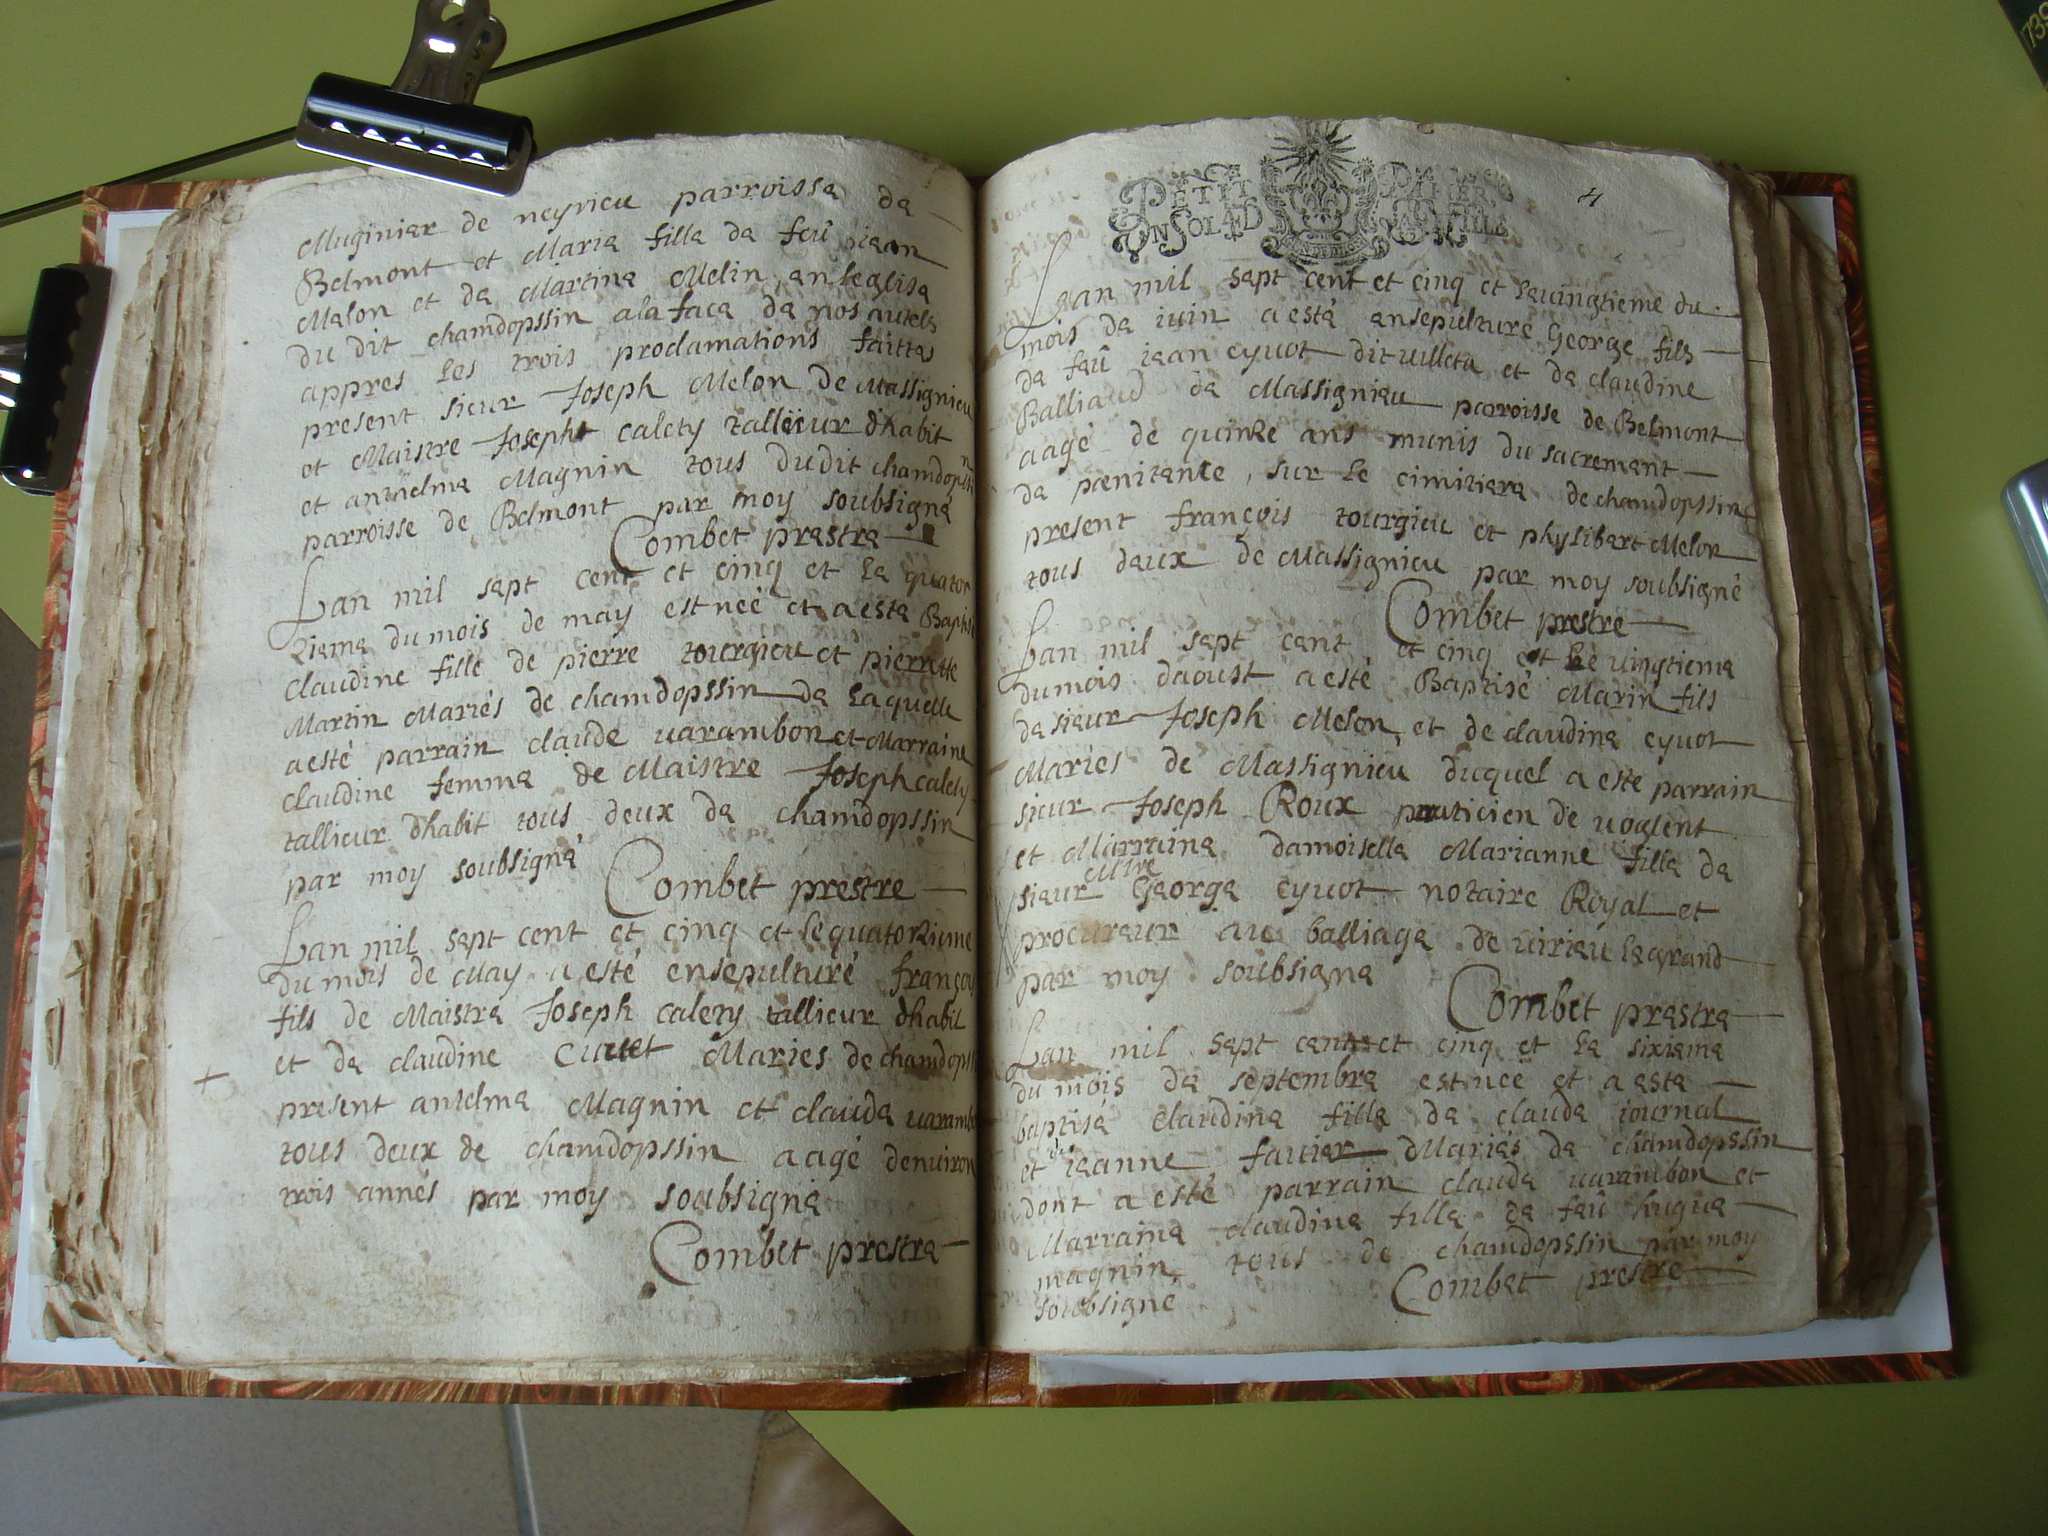 Muginier de neyrieu parroisse de
Belmont et Maria fille de feû jean
Melon et de Martine Melin en leglise
du dit chamdopssin ala face de nos autels
appres les trois proclamations faittes
present sieur Joseph Melon de Massignieu
et Maistre Joseph calety tallieur dhabit
et antelme Magnin tous dudit chamdopssin
parroisse de Belmont par moy soubsigné
Combet prestre
Lan mil sept cent et cinq et le quator
zieme du mois de may est neé et a esté Baptisé
claudine fille de pierre tourgieu et pierrette
Martin Mariés de chamdopssin de laquelle
a esté parrain claude varambon et Marraine
claudine femme de Maistre Joseph calety
tallieur dhabit tous deux de chamdopssin
par moy soubsigné
Combet prestre
Lan mil sept cent et cinq et le quatorzieme
du mois de May a esté ensepulturé françois
fils de Maistre Joseph calety tallieur dhabit
et de claudine Mariés de chamdopssin
present antelme Magnin et claude varambon
tous deux de chamdopssin aagé denviron
trois annés par moy soubsigné
Combet prestre
PETIT PAPIER
UN SOL 4 D LA FEUILLE
4
Lan mil sept cent et cinq et le vingtieme du
mois de iuin a esté ensepulturé George fils
de feû iean eyvot dit villeta et de claudine
Balliaud de Massignieu parroisse de Belmont
aagé de quinze ans munis du sacrement
de pœnitente, sur le cimitiere de chamdopssin
present françois tourgieu et phylibert Melon
tous deux de Massignieu par moy soubsigné
Combet prestre
Lan mil sept cent et cinq et le vingtieme
du mois daoust a esté Baptisé Marin fils
de sieur Joseph Melon et de claudine eyvot
Mariés de Massignieu duquel a esté parrain
sieur Joseph Roux praticien de voglent
et Marraine damoiselle Marianne fille de
Mre
sieur George eyvot notaire Royal et
procureur au balliage de virieu le grand
par moy soubsigné
Combet prestre
Lan mil sept cent et cinq et le sixieme
du mois de septembre est neé et a esté
baptisé claudine fille de claude iournal
et de ieanne favier Mariés de chamdopssin
dont a esté parrain claude varambon et
Marraine claudine fille de feû hugue
magnin tous de chamdopssin par moy
soubsigné Combet prestre